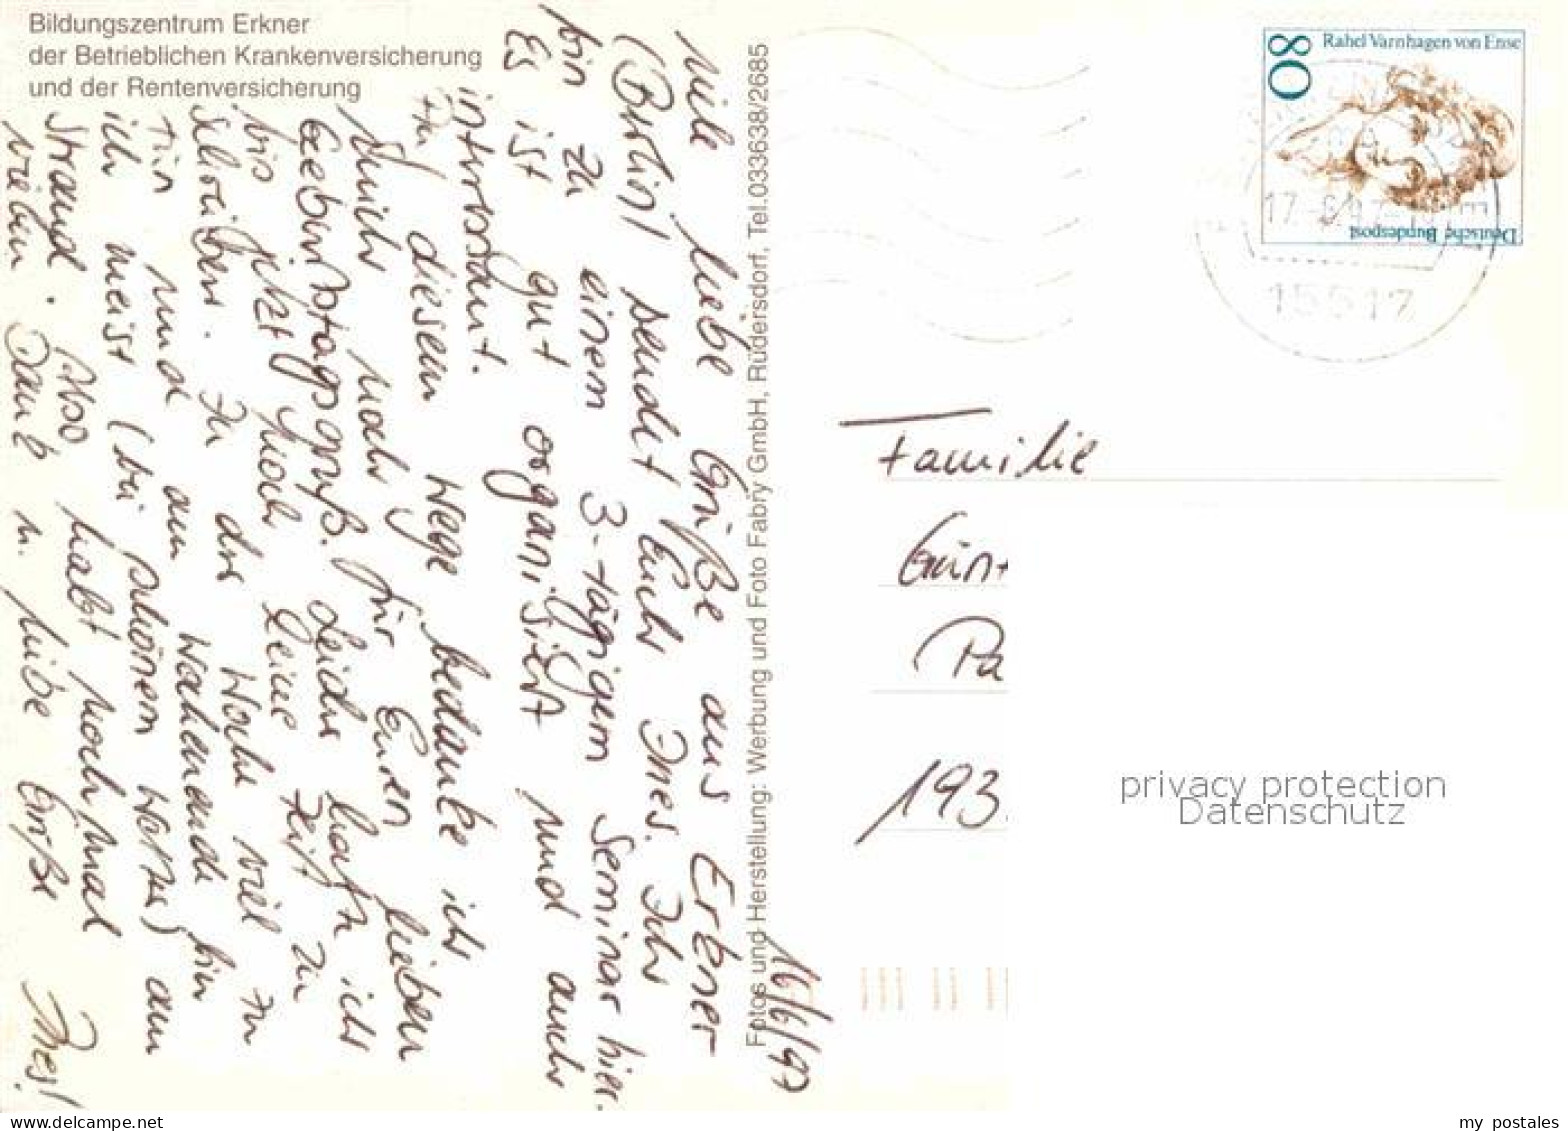 Bildungszentrum Erkner
der Betrieblichen Krankenversicherung
und der Rentenversicherung
16/6/97
Viele liebe Grüße aus Erkner
(Berlin) sendet Euch Ines. Ich
bin zu einem 3-tägigem Seminar hier.
Es ist gut organisiert und auch
interessant.
Auf diesem Wege bedanke ich
mich noch für Euren lieben
Geburtstagsgruß. Leider hatte ich
bis jetzt noch keine Zeit zu
schreiben. In der Woche viel zu
tun und am Wochenende bin
ich meist (bei schönem Wetter) am
Strand. Also habt nochmal
vielen Dank u. liebe Grüße Ines!
Fotos und Herstellung: Werbung und Foto Fabry GmbH, Rüdersdorf, Tel.033638/2685
80
Rahel Varnhagen von Ense
Deutsche Bundespost
15517
Familie
Günt
Pa
193
privacy protection
Datenschutz
my postales